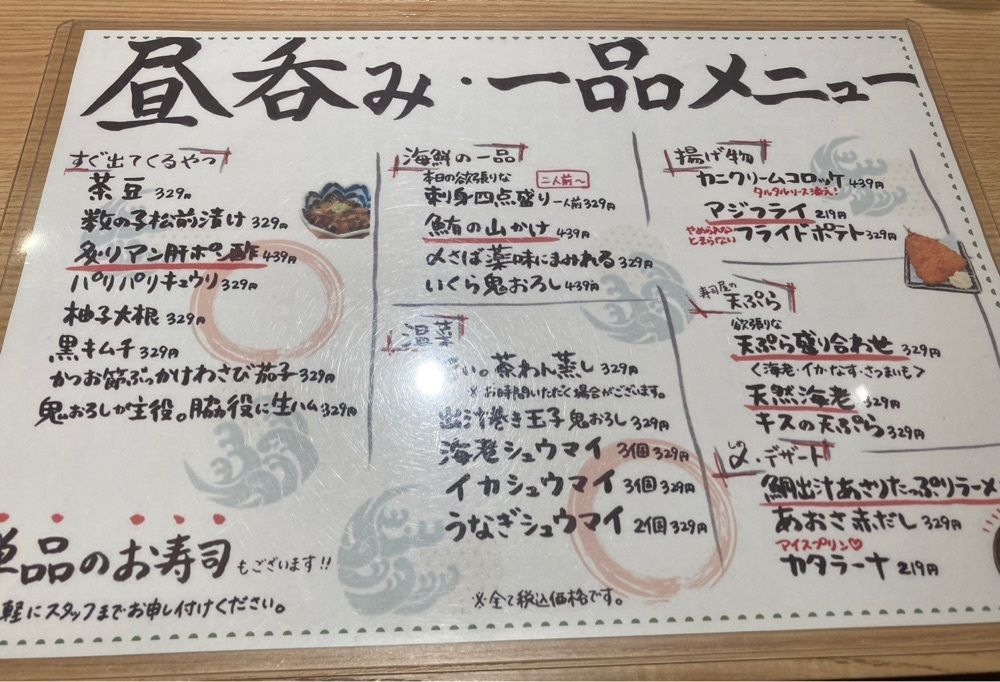 昼呑み・一品メニュー
すぐ出てくるやつ
茶豆 329円
数の子松前漬け 329円
炙りアン肝ポン酢 439円
パリパリキュウリ 329円
柚子大根 329円
黒キムチ 329円
かつお節ぶっかけわさび茄子 329円
鬼おろしが主役。脇役に生ハム 329円
海鮮の一品
本日の欲張りな 二人前〜
刺身四点盛り 一人前329円
鮪の山かけ 439円
〆さば薬味にまみれる 329円
いくら鬼おろし 439円
温
茶わん蒸し 329円
※お時間いただく場合がございます。
出汁巻き玉子 鬼おろし 329円
海老シュウマイ 3個329円
イカシュウマイ 3個329円
うなぎシュウマイ 2個329円
揚げ物
カニクリームコロッケ 439円
タルタルソース添え!
アジフライ 219円
やめられないとまらない フライドポテト 329円
寿司屋の天ぷら
欲張りな
天ぷら盛り合わせ 329円
<海老・イカ・なす・さつまいも>
天然海老 329円
キスの天ぷら 329円
〆・デザート
鯛出汁あさりたっぷりラーメ
あおさ赤だし 329円
アイスプリン♡
カタラーナ 219円
単品のお寿司もございます!!
軽にスタッフまでお申し付けください。
※全て税込価格です。